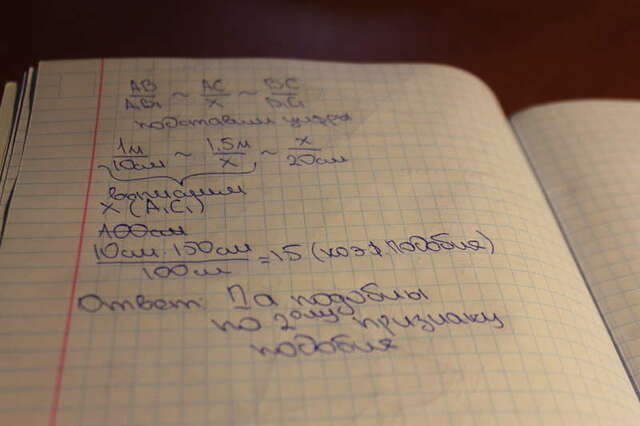 AB/A₁B₁ ~ AC/X ~ BC/B₁C₁
подставим цифры
1м/10см ~ 1,5м/x ~ x/20см
вычислим
X (A₁C₁)
100см
10см · 150см/100см = 15 (коэф подобия)
Ответ: Па подобны
по 2ому признаку
подобия